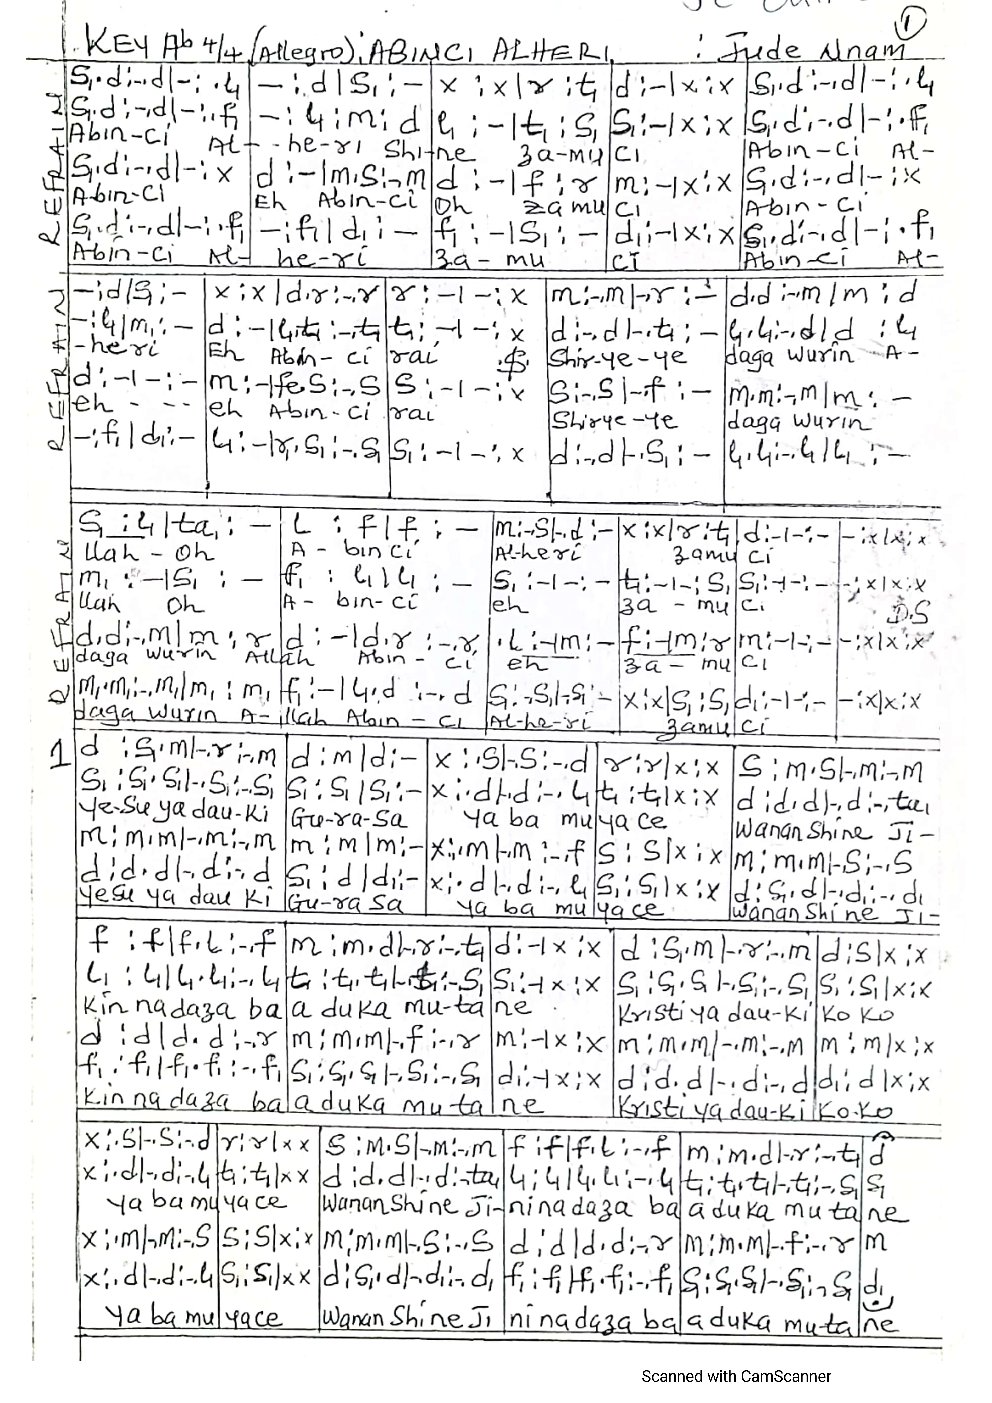 ①
KEY Ab 4/4 (Allegro): ABINCI ALHERI : Jude Nnam
REFRAIN
S₁.d:-.d|-:.l₁ | -:d|S₁:- | x:x|r:t₁ | d:-|x:x | S₁.d:-.d|-:.l₁
S₁.d:-.d|-:.f₁ | -:l₁:m:d | l₁:-|t₁:S₁ | S₁:-|x:x | S₁.d:-.d|-:.f₁
Abin-ci Al- -he-ri Shi-ne za-mu ci Abin-ci Al-
S₁.d:-.d|-:x | d:-|m.S:-.m | d:-|f:r | m:-|x:x | S₁.d:-.d|-:x
Abin-ci Eh Abin-ci Oh zamu ci Abin-ci
S₁.d:-.d|-:.f₁ | -:f₁|d₁:- | f₁:-|S₁:- | d₁:-|x:x | S₁.d:-.d|-:.f₁
Abin-ci Al- he-ri za-mu ci Abin-ci Al-
REFRAIN
-:d|S₁:- | x:x|d.r:-.r | r:-|-:x | m:-.m|-r:- | d.d:-.m|m:d
-:l₁|m₁:- | d:-|l₁.t₁:-.t₁ | t₁:-|-:x | d:-.d|-.t₁:- | l₁.l₁:-.d|d:l₁
-he ri Eh Abin-ci rai $ Shir-ye-ye daga wurin A-
d:-|-:- | m:-|fe.S:-.S | S:-|-:x | S:-.S|-.f:- | m.m:-.m|m:-
eh - -- eh Abin-ci rai Shirye-ye daga wurin
-:f₁|d₁:- | l₁:-|r₁.S₁:-.S₁ | S₁:-|-:x | d:-.d|-.S₁:- | l₁.l₁:-.l₁|l₁:-
REFRAIN
S₁:l₁|ta₁:- | l:f|f:- | m:-.S|-.d:- | x:x|r:t₁ | d:-|-:- | -:x|x:x
llah - Oh A-bin ci Al-heri zamu ci
m₁:-|S₁:- | f₁:l₁|l₁:- | S₁:-|-:- | t₁:-|-:S₁ | S₁:-|-:- | -:x|x:x
llah Oh A-bin-ci eh za-mu ci D.S
d.d:-.m|m:r | d:-|d.r:-.r | .l:-|m:- | f:-|m:r | m:-|-:- | -:x|x:x
daga wurin Allah Abin-ci eh za-mu ci
m₁.m₁:-.m₁|m₁:m₁ | f₁:-|l₁.d:-.d | S₁:-.S₁|-.S₁:- | x:x|S₁:S₁ | d₁:-|-:- | -:x|x:x
daga wurin A-llah Abin-ci Al-he-ri zamu ci
1
d:S₁.m|-.r:-.m | d:m|d:- | x:.S|-.S:-.d | r:r|x:x | S:m.S|-.m:-.m
S₁:S₁.S₁|-.S₁:-.S₁ | S₁:S₁|S₁:- | x:.d|-.d:-.l₁ | t₁:t₁|x:x | d:d.d|-.d:-.ta₁
Ye-Su ya dau-Ki Gu-ra-Sa Ya ba mu yace Wanan Shine Ji-
m:m.m|-.m:-.m | m:m|m:- | x:.m|-.m:-.f | S:S|x:x | m:m.m|-.S:-.S
d:d.d|-.d:-.d | S₁:d|d₁:- | x:.d|-.d:-.l₁ | S₁:S₁|x:x | d:S₁.d|-.d₁:-.d₁
Yesu ya dau Ki Gu-ra Sa Ya ba mu yace Wanan Shi ne Ji-
f:f|f.l:-.f | m:m.d|-.r:-.t₁ | d:-|x:x | d:S₁.m|-.r:-.m | d:S|x:x
l₁:l₁|l₁.l₁:-.l₁ | t₁:t₁.t₁|-.t₁:-.S₁ | S₁:-|x:x | S₁:S₁.S₁|-.S₁:-.S₁ | S₁:S₁|x:x
Kin na daza ba a duka mu-ta ne Kristi ya dau-Ki Ko Ko
d:d|d.d:-.r | m:m.m|-.f:-.r | m:-|x:x | m:m.m|-.m:-.m | m:m|x:x
f₁:f₁|f₁.f₁:-.f₁ | S₁:S₁.S₁|-.S₁:-.S₁ | d₁:-|x:x | d:d.d|-.d:-.d | d₁:d|x:x
Kin na daza ba a duka mu ta ne Kristi ya dau-Ki Ko-Ko
x:.S|-.S:-.d | r:r|x x | S:m.S|-.m:-.m | f:f|f.l:-.f | m:m.d|-.r:-.t₁ | d
x:.d|-.d:-.l₁ | t₁:t₁|x x | d:d.d|-.d:-.ta₁ | l₁:l₁|l₁.l₁:-.l₁ | t₁:t₁.t₁|-.t₁:-.S₁ | S₁
Ya ba mu yace Wanan Shine Ji-ni na daza ba a duka mu ta ne
x:.m|-.m:-.S | S:S|x:x | m:m.m|-.S:-.S | d:d|d.d:-.r | m:m.m|-.f:-.r | m
x:.d|-.d:-.l₁ | S₁:S₁|x x | d:S₁.d|-.d₁:-.d₁ | f₁:f₁|f₁.f₁:-.f₁ | S₁:S₁.S₁|-.S₁:-.S₁ | d₁
Ya ba mu yace Wanan Shine Ji ni na daza ba a duka mu ta ne
Scanned with CamScanner